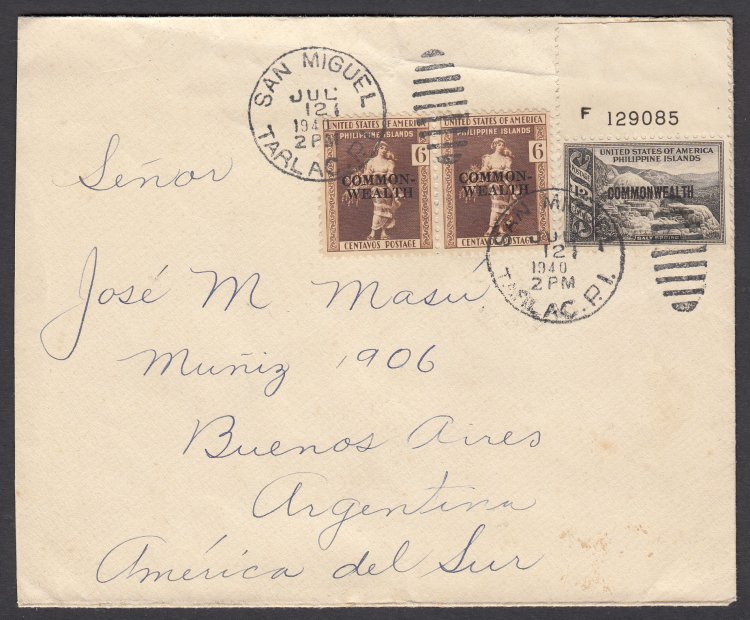 SAN MIGUEL
JUL
12
1940
2 PM
TARLAC, P.I.
UNITED STATES OF AMERICA
PHILIPPINE ISLANDS
6
COMMON-
WEALTH
CENTAVOS POSTAGE
UNITED STATES OF AMERICA
PHILIPPINE ISLANDS
6
COMMON-
WEALTH
CENTAVOS POSTAGE
F 129085
UNITED STATES OF AMERICA
PHILIPPINE ISLANDS
12
COMMONWEALTH
SAN MIGUEL
JUL
12
1940
2 PM
TARLAC. P.I.
Señor
José M Masú
Muñiz 1906
Buenos Aires
Argentina
América del Sur